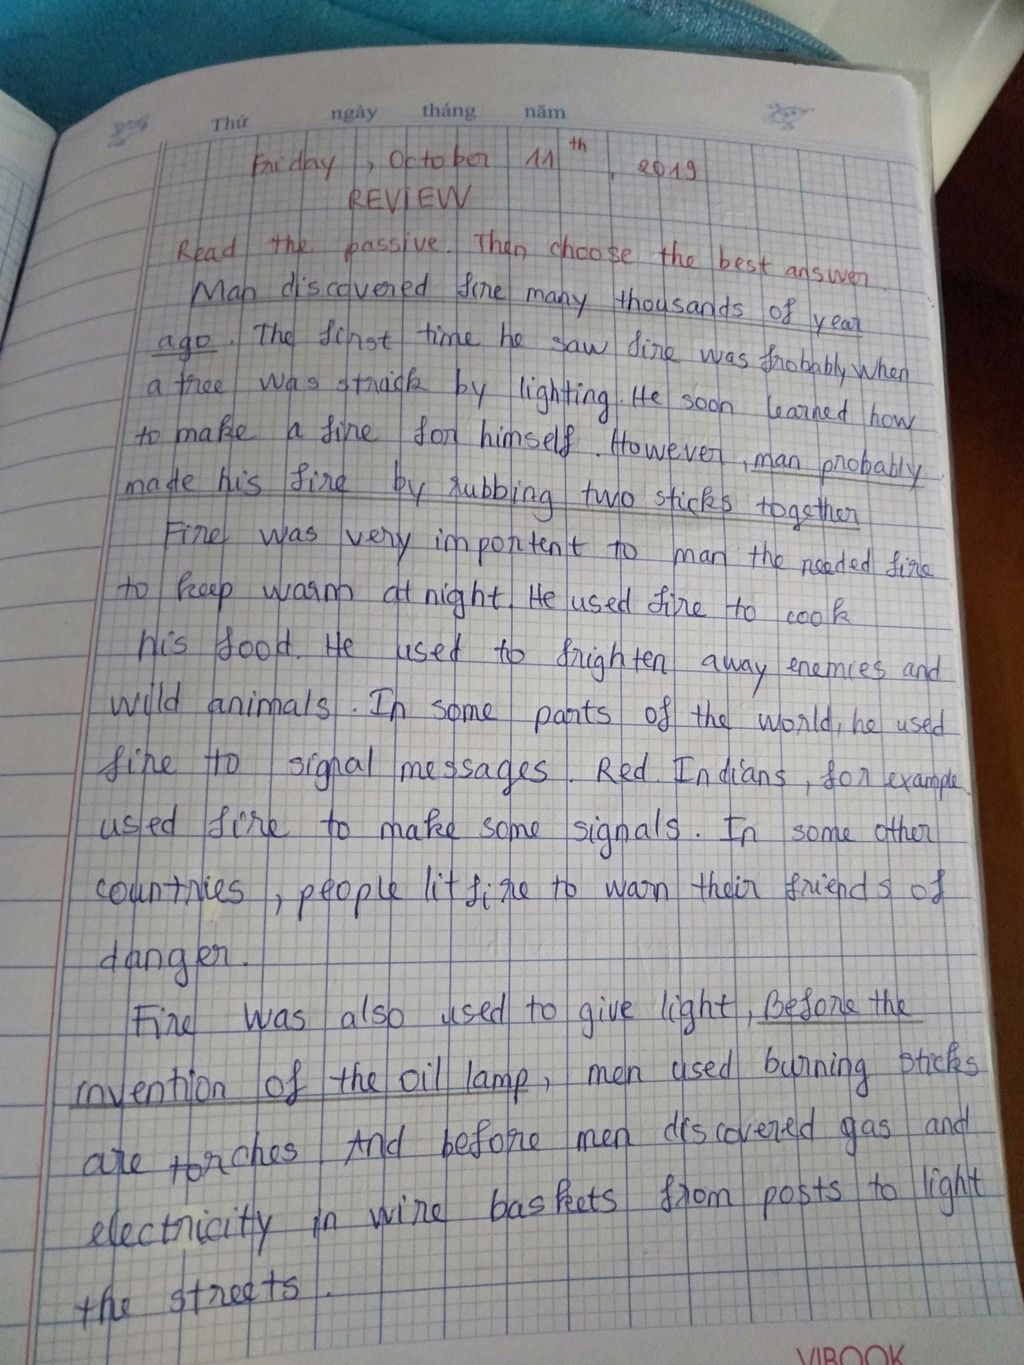 Thứ ngày tháng năm
Friday, October 11th, 2019
REVIEW
Read the passive. Then choose the best answer.
Man discovered fire many thousands of year
ago. The first time he saw fire was frobably when
a tree was struck by lighting. He soon learned how
to make a fire for himself. However, man probably
made his fire by rubbing two sticks together
Fire was very importent to man the needed fire
to keep warm at night. He used fire to cook
his food. He used to frighten away enemies and
wild animals. In some parts of the world, he used
fire to signal messages. Red Indians, for example,
used fire to make some signals. In some other
countries, people lit fire to warn their friends of
danger.
Fire was also used to give light, Before the
invention of the oil lamp, men used burning sticks
are torches And before men discovered gas and
electricity in wire baskets from posts to light
the streets.
VIBOOK